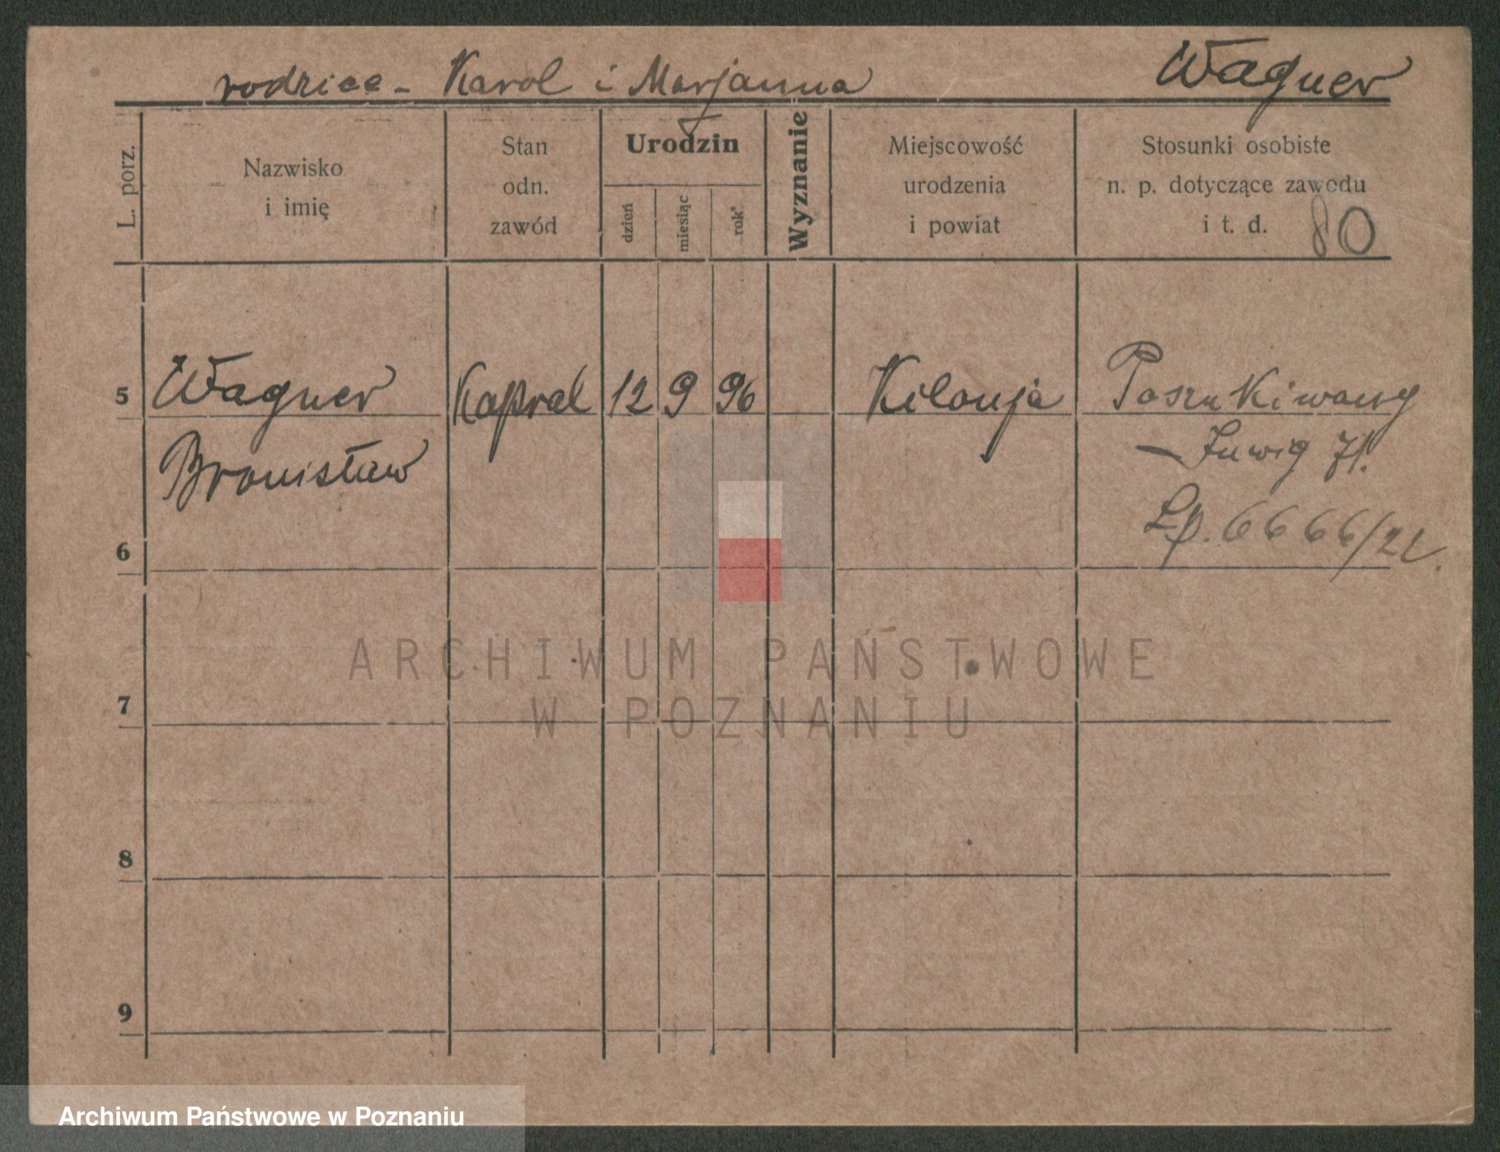 Wagner
rodzice - Karol i Marjanna
L. porz.
Nazwisko
i imię
Stan
odn.
zawód
Urodzin
dzień
miesiąc
rok
Wyznanie
Miejscowość
urodzenia
i powiat
Stosunki osobiste
n. p. dotyczące zawodu
i t. d. 80
5 Wagner Kapral 12 9 96 Kilonja Poszukiwany
Bronisław
71.
Lp. 6666/22.
6
7
8
9
ARCHIWUM PAŃSTWOWE
W POZNANIU
Archiwum Państwowe w Poznaniu